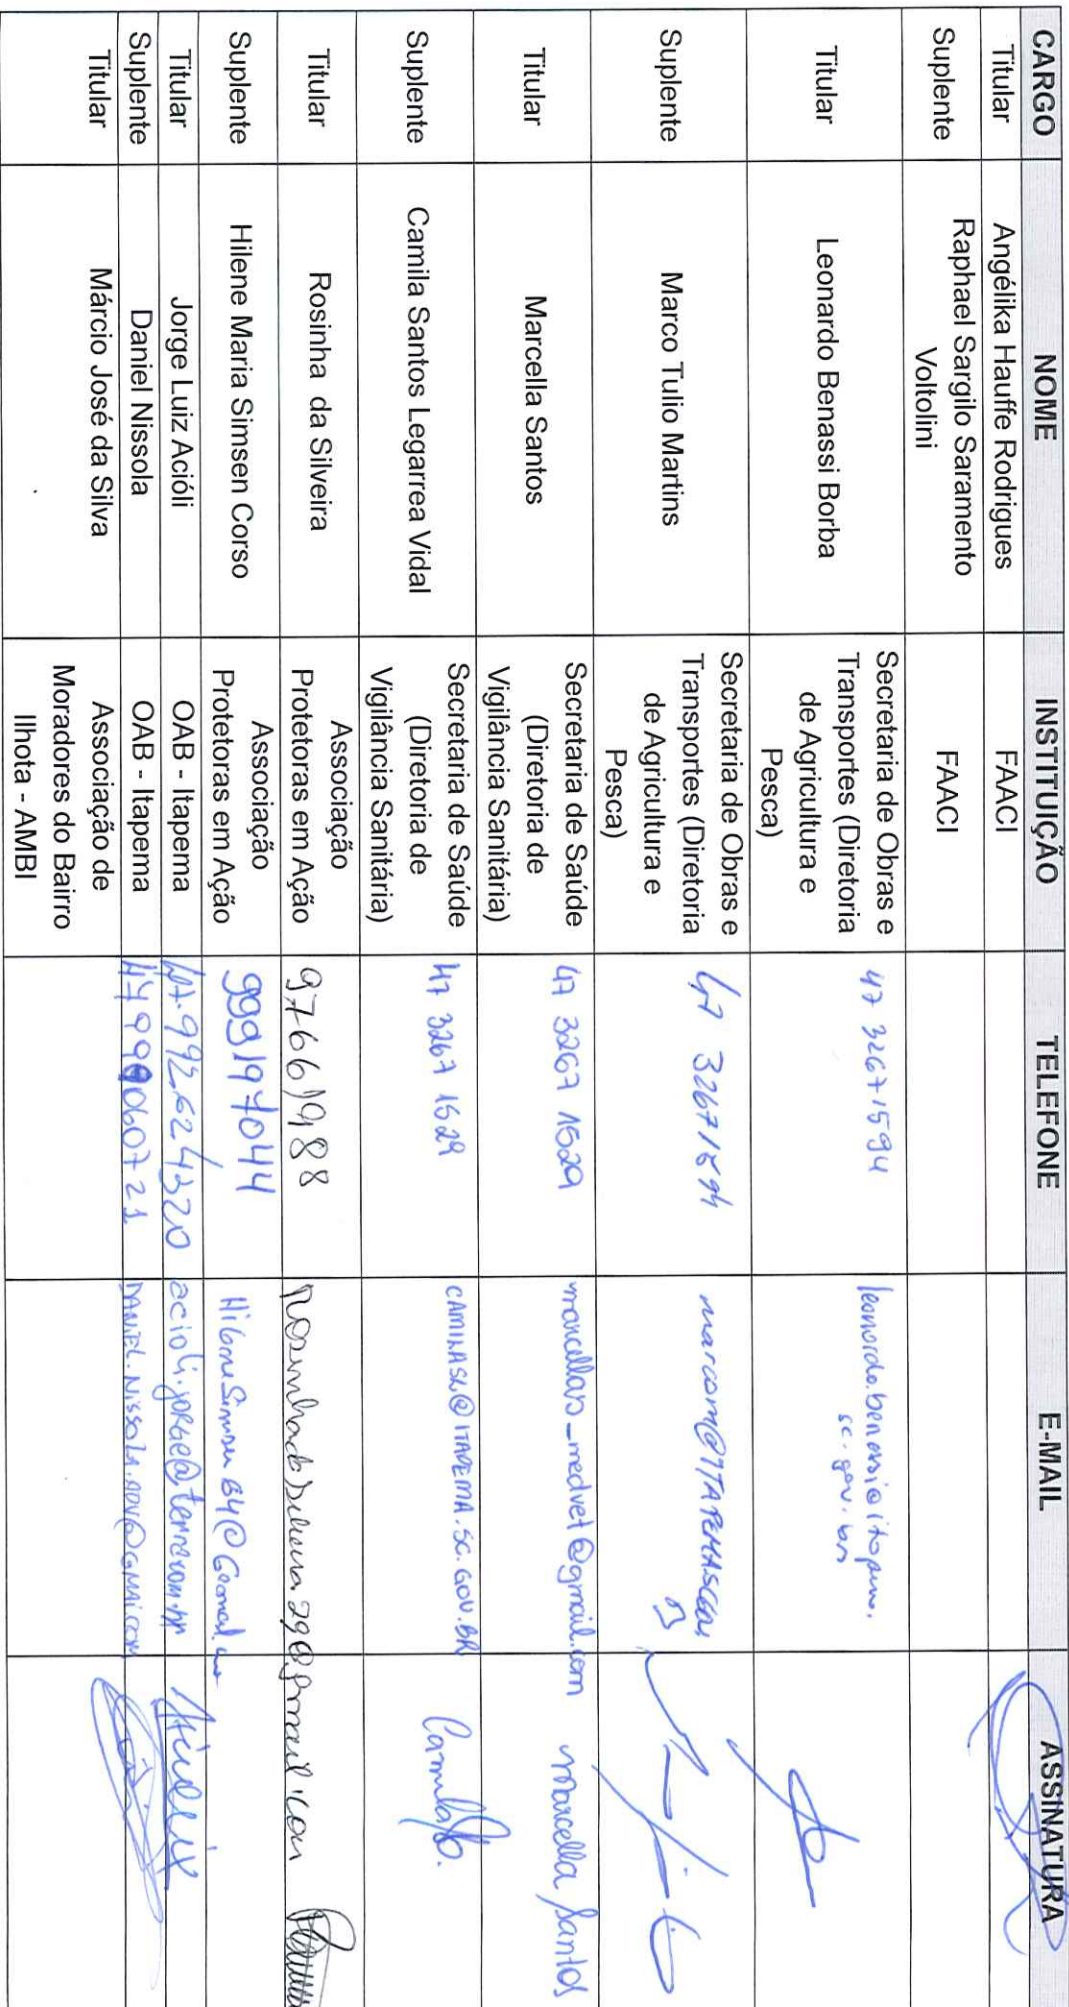 CARGO NOME INSTITUIÇÃO TELEFONE E-MAIL ASSINATURA
Titular Angélika Hauffe Rodrigues FAACI
Suplente Raphael Sargilo Saramento FAACI
Voltolini
Titular Leonardo Benassi Borba Secretaria de Obras e
Transportes (Diretoria
de Agricultura e
Pesca)
47 32671594
sc.gov.br
Suplente Marco Tulio Martins Secretaria de Obras e
Transportes (Diretoria
de Agricultura e
Pesca)
47 32671594
Titular Marcella Santos Secretaria de Saúde
(Diretoria de
Vigilância Sanitária)
47 3267 1529 marcellas_medvet@gmail.com Marcella Santos
Suplente Camila Santos Legarrea Vidal Secretaria de Saúde
(Diretoria de
Vigilância Sanitária)
47 3267 1529 CAMILASL@ITAPEMA.SC.GOV.BR
Titular Rosinha da Silveira Associação
Protetoras em Ação
976661988
Suplente Hilene Maria Simsen Corso Associação
Protetoras em Ação
999197044
Titular Jorge Luiz Acióli OAB - Itapema 47.992624320 acioli.jorge@terra.com.br
Suplente Daniel Nissola OAB - Itapema DANIEL.NISSOLA.ADV@GMAIL.COM
Titular Márcio José da Silva Associação de
Moradores do Bairro
Ilhota - AMBI